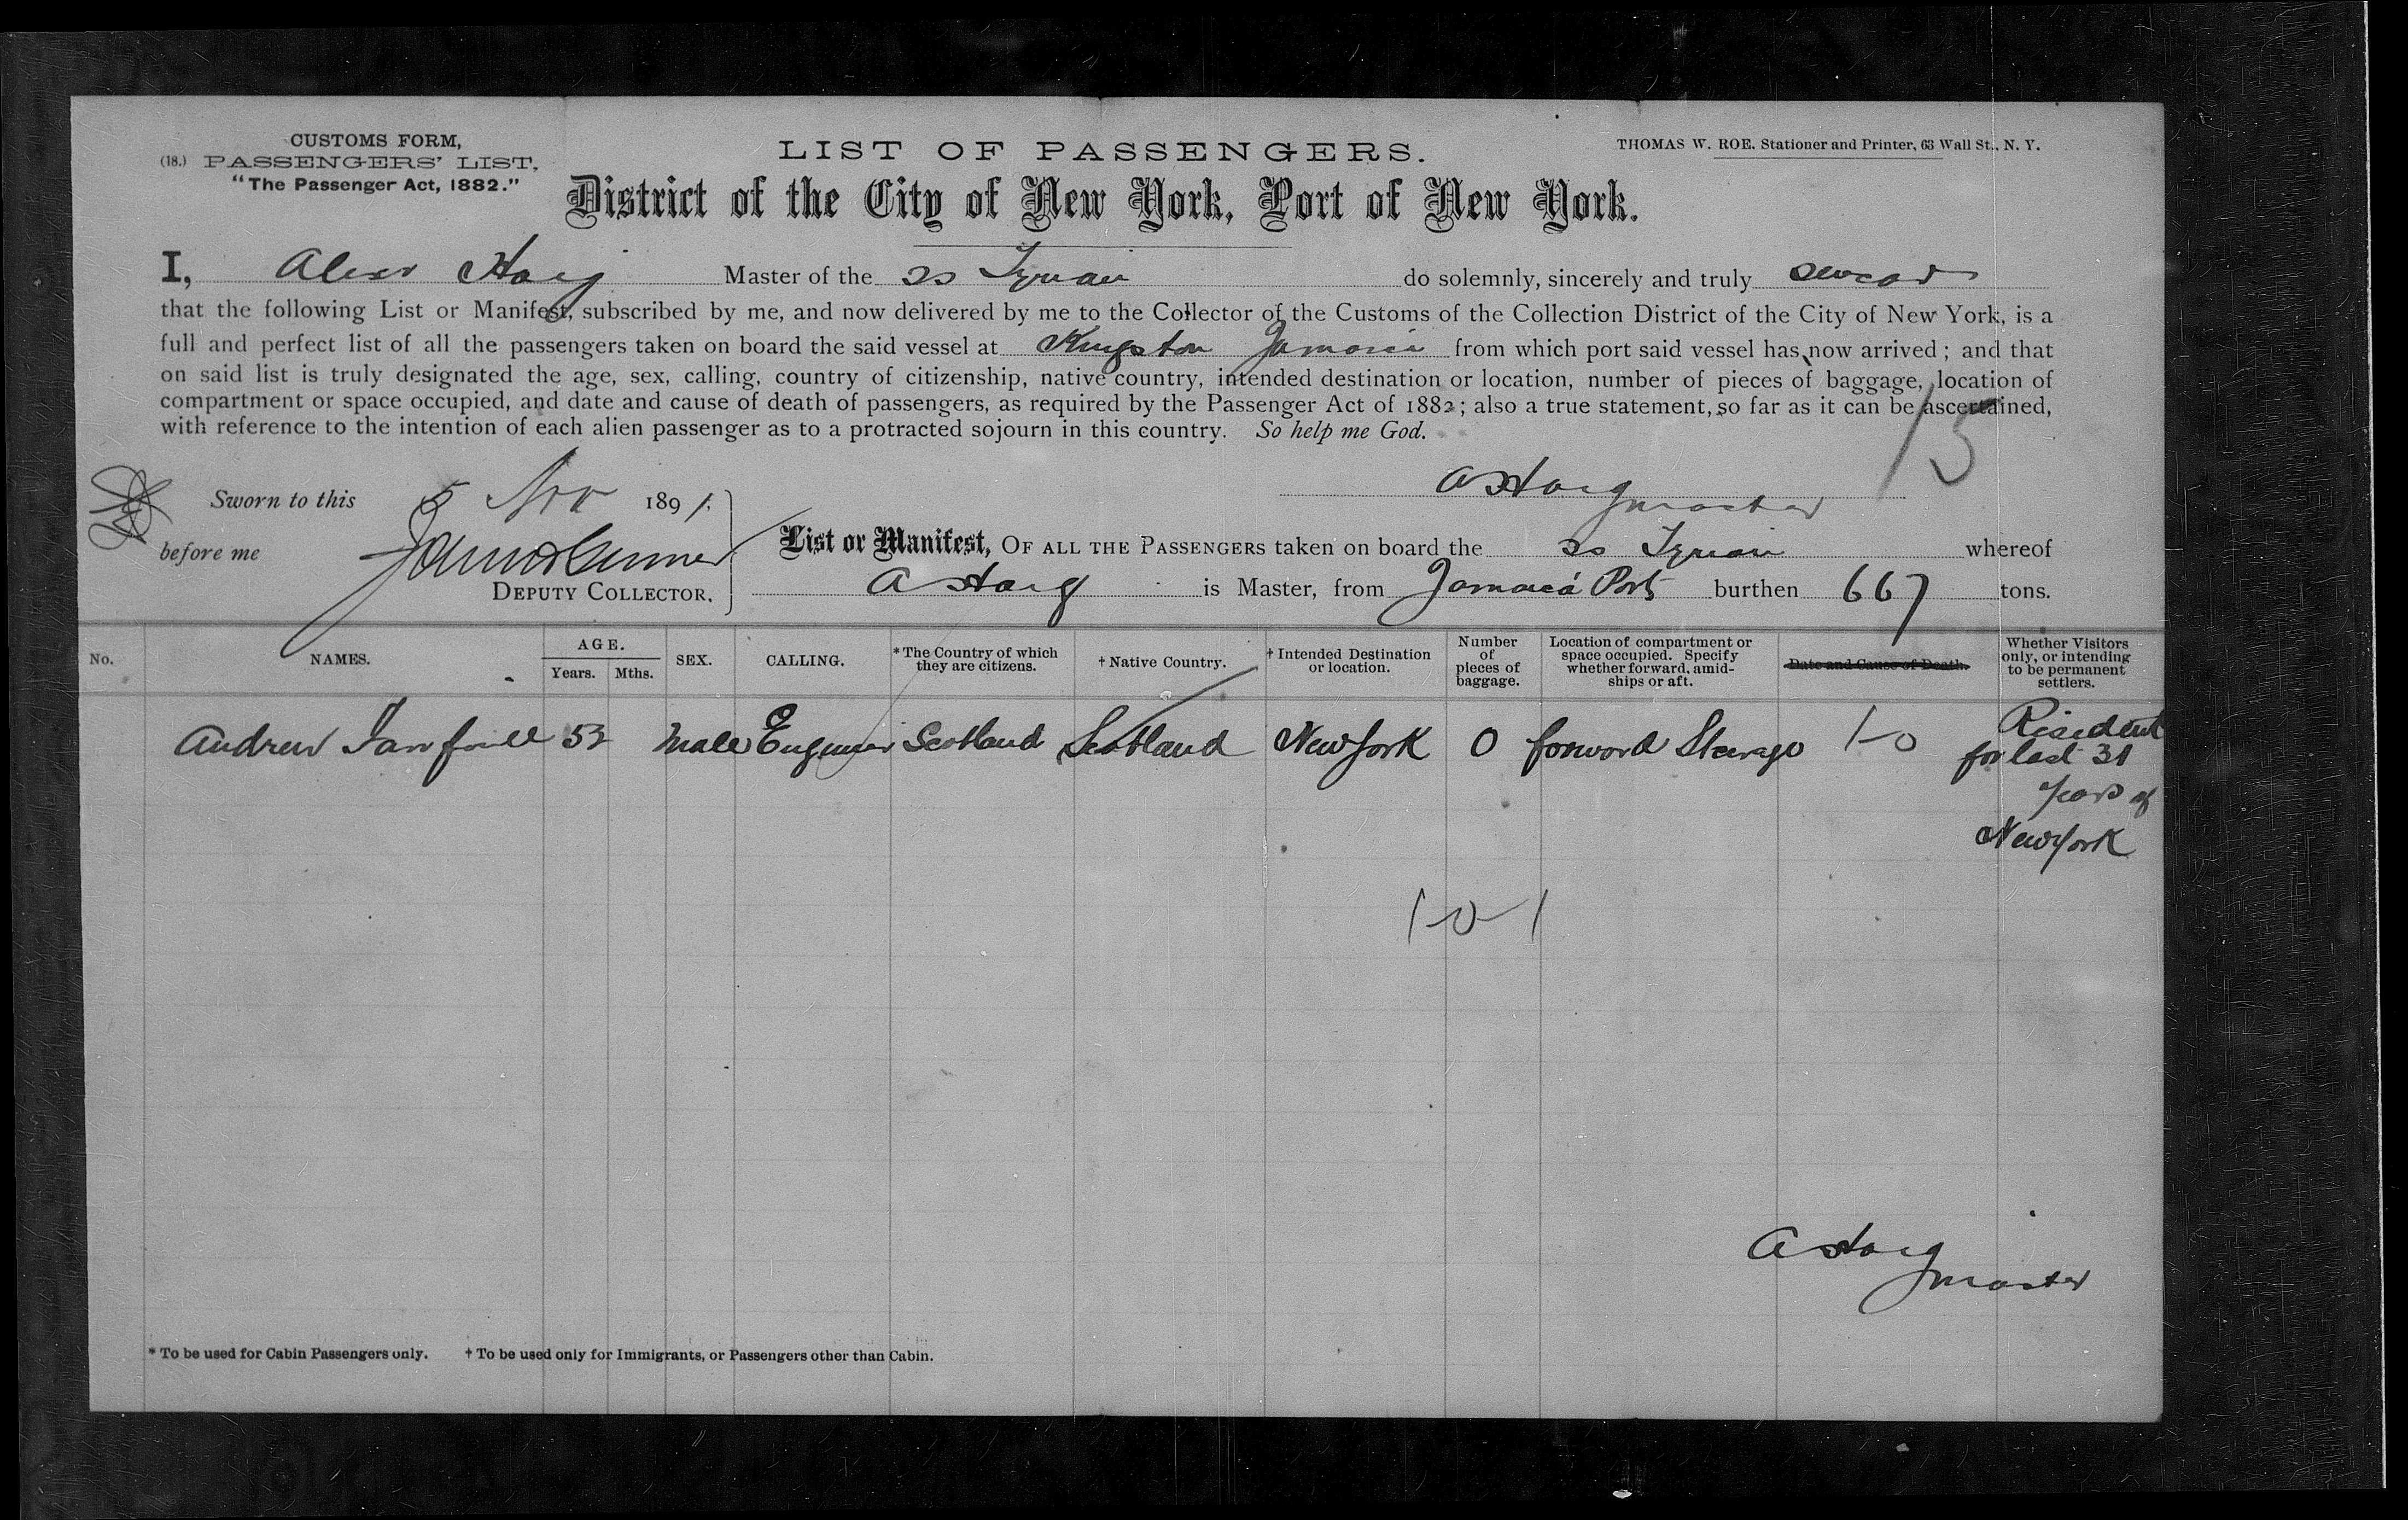 CUSTOMS FORM,
(18.) PASSENGERS' LIST,
"The Passenger Act, 1882."
LIST OF PASSENGERS.
THOMAS W. ROE. Stationer and Printer, 63 Wall St., N. Y.
District of the City of New York, Port of New York.
I, Alexr Haig Master of the ss Tynian do solemnly, sincerely and truly swear
that the following List or Manifest, subscribed by me, and now delivered by me to the Collector of the Customs of the Collection District of the City of New York, is a
full and perfect list of all the passengers taken on board the said vessel at Kingston Jamaica from which port said vessel has now arrived; and that
on said list is truly designated the age, sex, calling, country of citizenship, native country, intended destination or location, number of pieces of baggage, location of
compartment or space occupied, and date and cause of death of passengers, as required by the Passenger Act of 1882; also a true statement, so far as it can be ascertained,
with reference to the intention of each alien passenger as to a protracted sojourn in this country. So help me God.
15
A Haig
master
Sworn to this 5 Nov 1891.
before me
DEPUTY COLLECTOR.
List or Manifest, OF ALL THE PASSENGERS taken on board the ss Tynian whereof
A Haig is Master, from Jamaica Port burthen 667 tons.
No. NAMES. AGE. Years. Mths. SEX. CALLING. *The Country of which they are citizens. †Native Country. †Intended Destination or location. Number of pieces of baggage. Location of compartment or space occupied. Specify whether forward, amidships or aft. Date and Cause of Death. Whether Visitors only, or intending to be permanent settlers.
Andrew 52 Male Engineer Scotland Scotland New York 0 forward Steerage 1-0 Resident
for last 31
years of
New York
1-0-1
A Haig
master
* To be used for Cabin Passengers only. † To be used only for Immigrants, or Passengers other than Cabin.